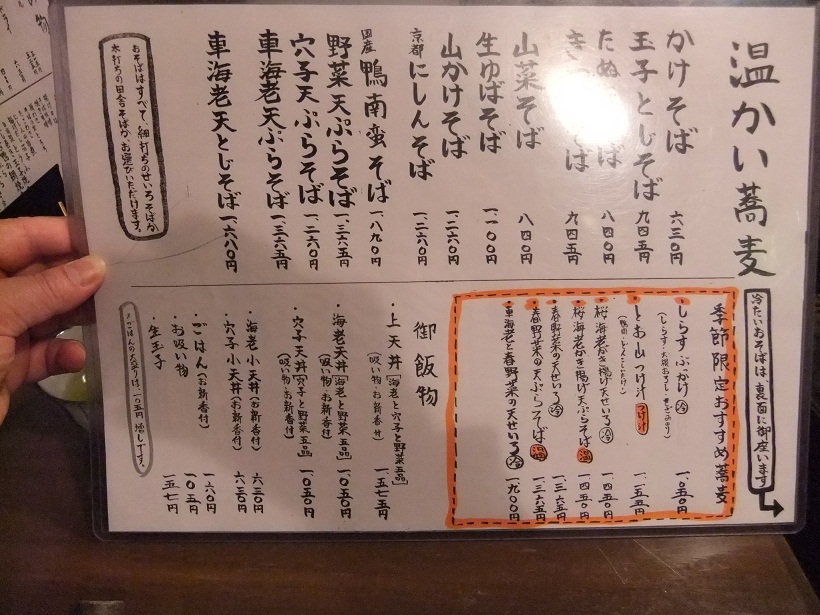 温かい蕎麦
かけそば 六三〇円
玉子とじそば 九四五円
たぬ そば 八四〇円
き そば 九四五円
山菜そば 八四〇円
生ゆばそば 一、一〇〇円
山かけそば 一、二六〇円
京都にしんそば 一、二六〇円
国産鴨南蛮そば 一、八九〇円
野菜天ぷらそば 一、三六五円
穴子天ぷらそば 一、二六〇円
車海老天ぷらそば 一、三六五円
車海老天とじそば 一、六八〇円
おそばはすべて、細打ちのせいろそばか、
太打ちの田舎そばか、お選びいただけます。
冷たいおそばは、裏面に御座います
季節限定おすすめ蕎麦
・しらすぶっかけ 冷 一、〇五〇円
・とお山つけ汁 つけ汁 一、一五五円
・桜海老かき揚げ天せいろ 冷 一、四五〇円
・桜海老かき揚げ天ぷらそば 温 一、四五〇円
・春野菜の天せいろ 冷 一、三六五円
・春野菜の天ぷらそば 温 一、三六五円
・車海老と春野菜の天せいろ 冷 一、九〇〇円
御飯物
・上天丼[海老と穴子と野菜五品] 一、五七五円
(吸い物・お新香付)
・海老天丼[海老と野菜五品] 一、〇五〇円
(吸い物・お新香付)
・穴子天丼[穴子と野菜五品] 一、〇五〇円
(吸い物・お新香付)
・海老小天丼(お新香付) 六三〇円
・穴子小天丼(お新香付) 六三〇円
・ごはん(お新香付) 一六〇円
・お吸い物 一〇五円
・生玉子 一五七円
ごはんの大盛りは、一〇五円増しです。